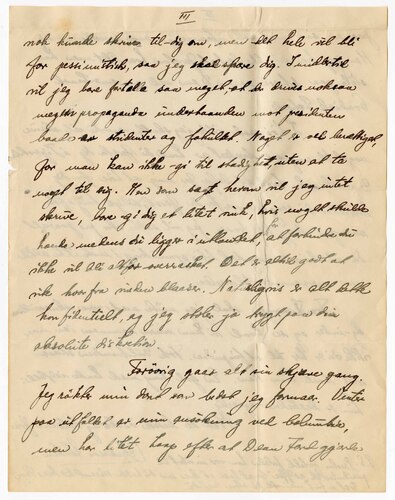 III
nok kunde skrive til dig om, men det hele vil bli
for pessimistisk, saa jeg skal spare dig. Imidlertid
vil jeg bare fortelle saa meget at der drives voksom
megen propaganda underhaanden mot presidenten
baade av studenter og fakultet. Noget er vel berettiget,
for man kan ikke gi til stadighet uten at ta
noget til sig. Men som sagt herom vil jeg intet
skrive, bare gi dig et litet vink, hvis noget skulde
haende mens du ligger i utlandet, for at forhindre du
ikke vil bli altfor overrasket. Det er altid godt at
vite hvor fra vinden blaaser. Naturligvis er alt dette
konfidentielt, og jeg stoler jo trygt paa din
absolute diskretion.
Forövrig gaar alt sin skjaeve gang.
Jeg rökter min dont som bedst jeg formaar. Venter
paa utfaldet av min ansökning ved Columbia,
men har litet haap efter at Dean Ford gjorde